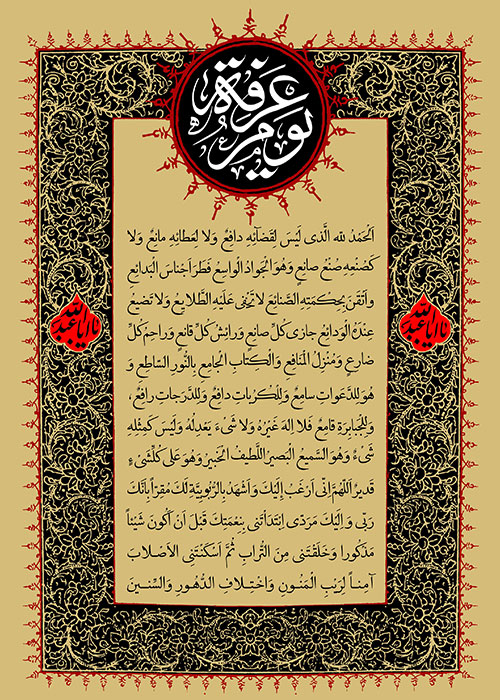 يوم عرفة
اَلْحَمْدُ لله الَّذى لَيْسَ لِقَضآئِهِ دافِعٌ وَلا لِعَطائِهِ مانِعٌ وَلا
كَصُنْعِهِ صُنْعُ صانِعٍ وَهُوَ الْجَوادُ الْواسِعُ فَطَرَ اَجْناسَ الْبَدائِعِ
واَتْقَنَ بِحِكْمَتِهِ الصَّنائِعَ لا تَخْفى عَلَيْهِ الطَّلايِعُ وَلا تَضيعُ
عِنْدَهُ الْوَدائِعُ جازى كُلِّ صانِعٍ وَرائِشُ كُلِّ قانعٍ وَراحِمُ كُلِّ
ضارِعٍ وَمُنْزِلُ الْمَنافِعِ وَالْكِتابِ الْجامِعِ بِالنُّورِ السّاطِعِ وَ
هُوَ لِلدَّعَواتِ سامِعٌ وَلِلْكُرُباتِ دافِعٌ وَلِلدَّرَجاتِ رافِعٌ،
وَلِلْجَبابِرَةِ قامِعٌ فَلا اِلهَ غَيْرُهُ وَلا شَىءَ يَعْدِلُهُ وَلَيْسَ كَمِثْلِهِ
شَىءٌ وَهُوَ السَّميعُ الْبَصيرُ اللَّطيفُ الْخَبيرُ وَهُوَ عَلى كُلِّشَىْءٍ
قَديرٌ اَللّهُمَّ اِنّى اَرْغَبُ إِلَيْكَ وَاَشْهَدُ بِالرُّبُوبِيَّةِ لَكَ مُقِرّاً بِاَنَّكَ
رَبّى وَ اِلَيْكَ مَرَدّى اِبْتَدَأتَنى بِنِعْمَتِكَ قَبْلَ اَنْ اَكُونَ شَيْئاً
مَذْكُورا وَخَلَقْتَنى مِنَ التُّرابِ ثُمَّ اَسْكَنْتَنِى الْاَصْلابَ
آمِناً لِرَيْبِ الْمَنُونِ وَاخْتِلافِ الدُّهُورِ وَالسِّنينَ
يا ابا عبدالله
يا ابا عبدالله